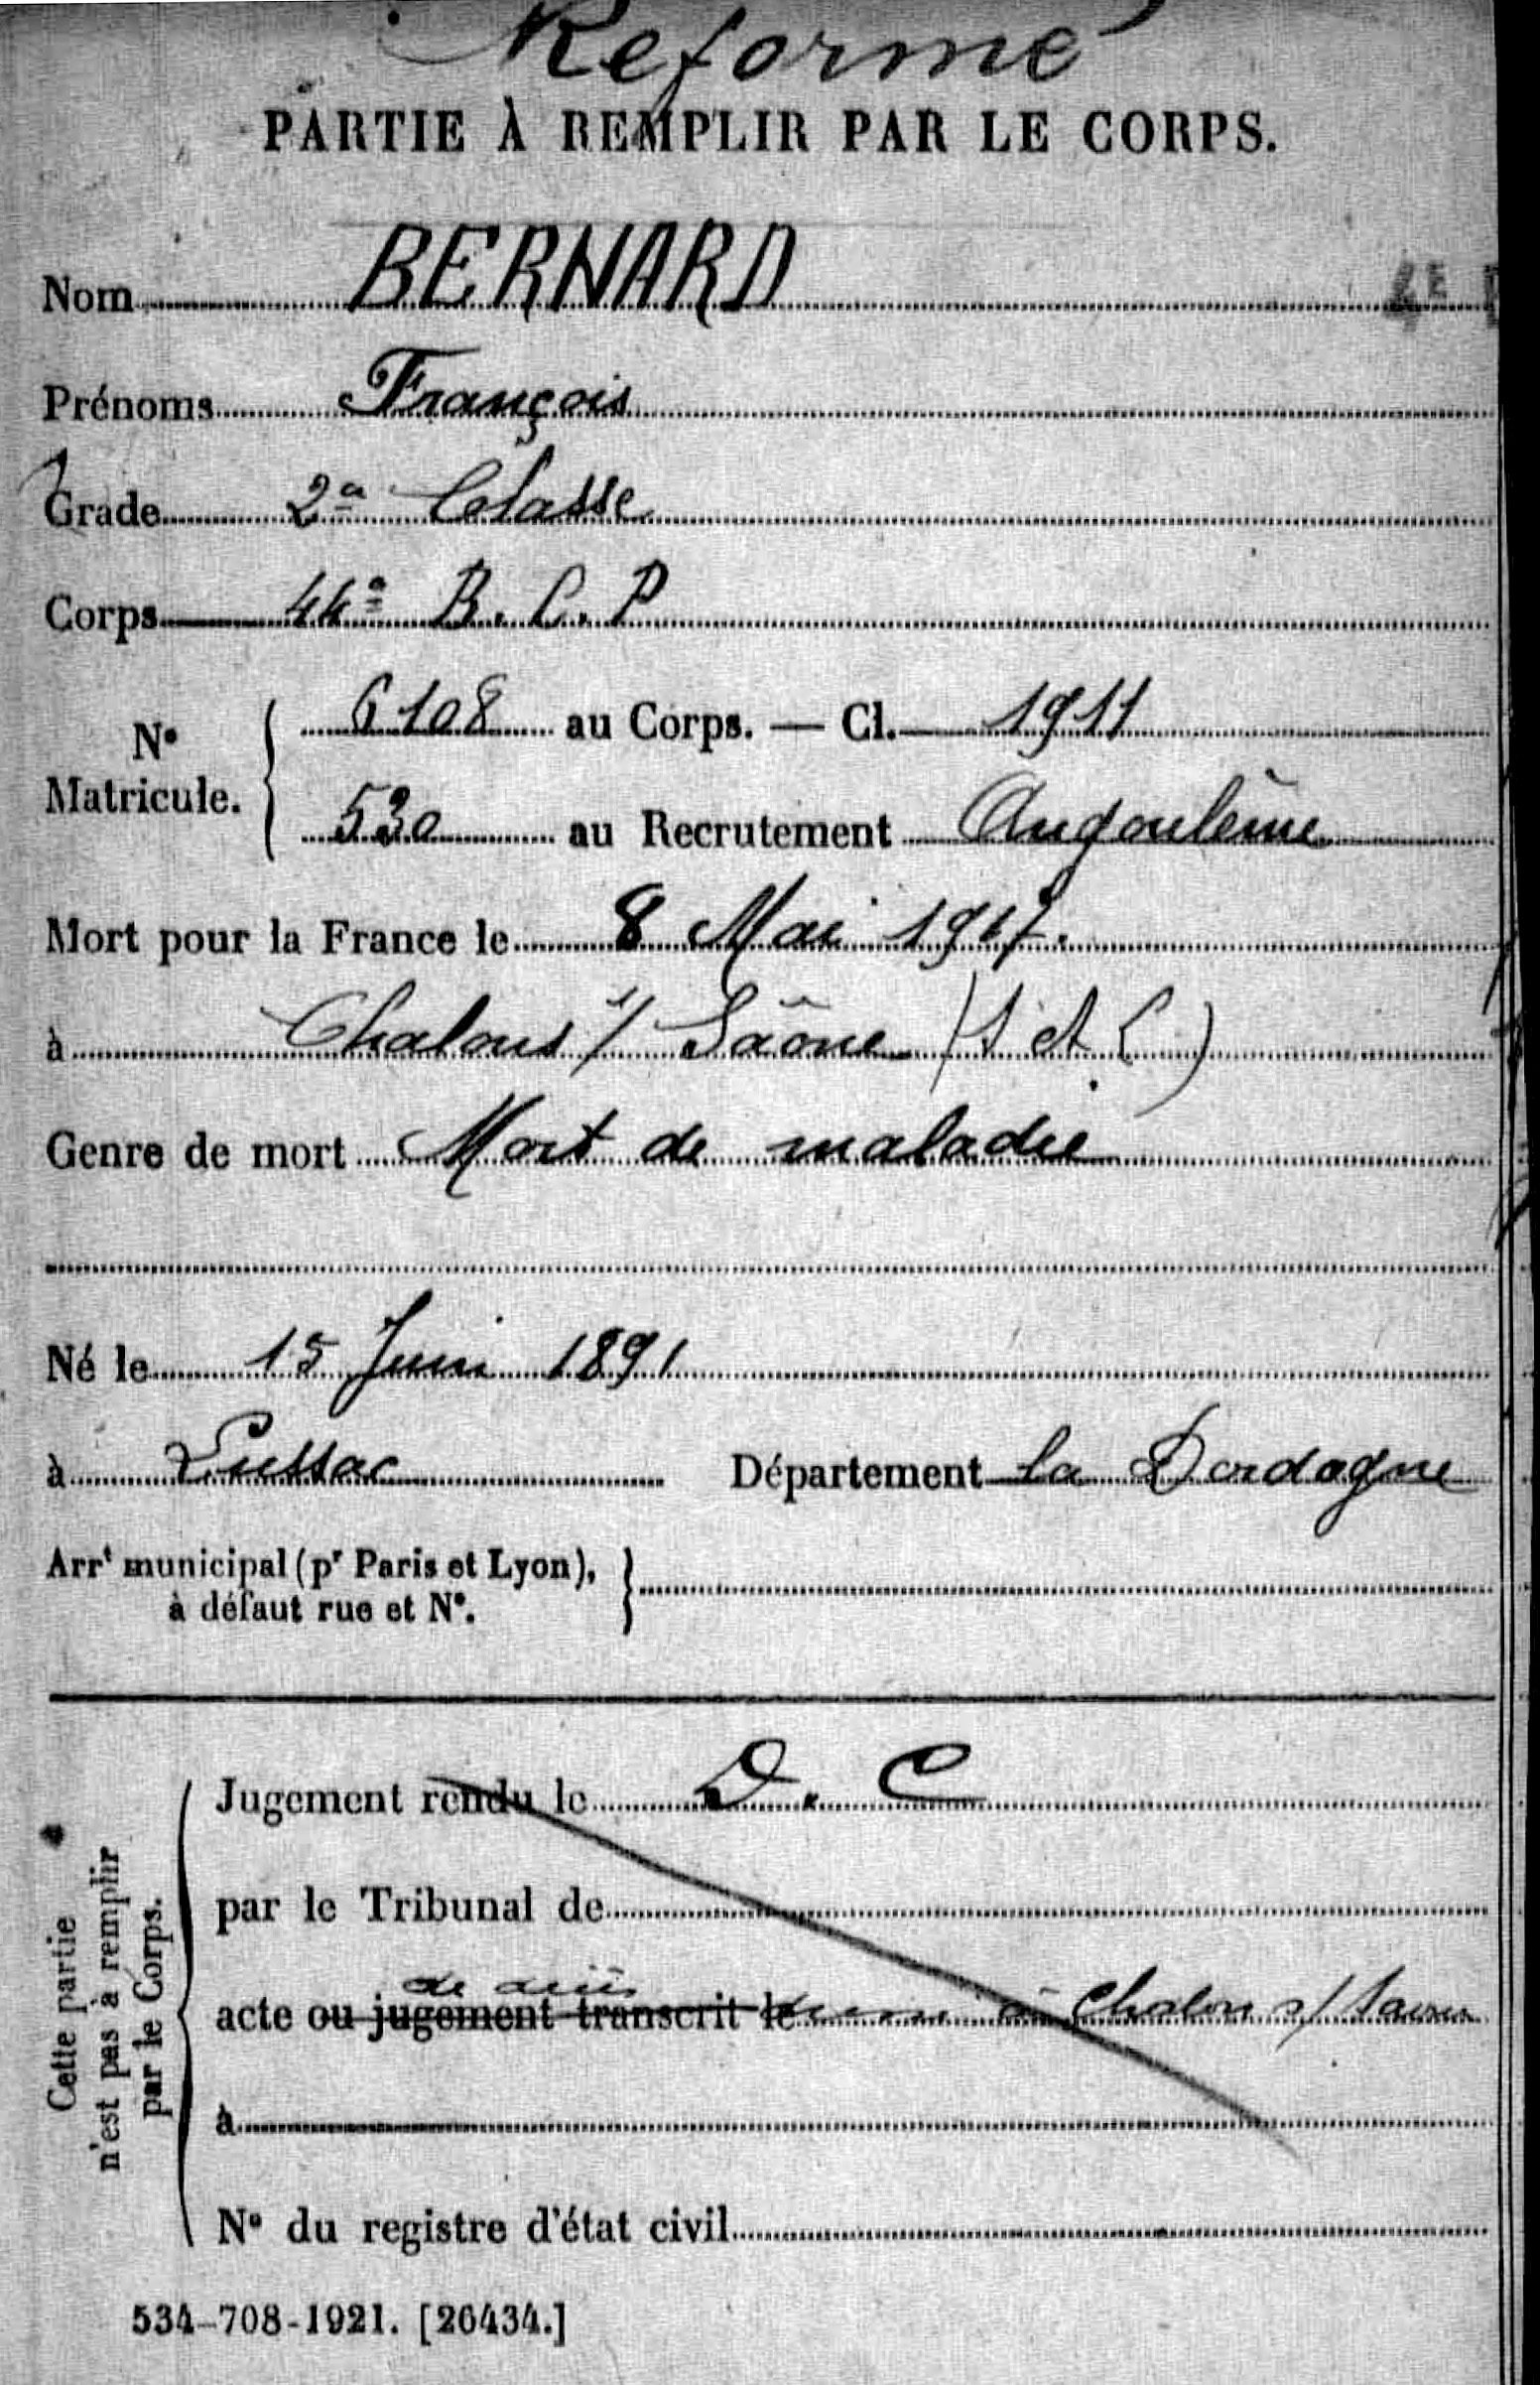 Reformé
PARTIE À REMPLIR PAR LE CORPS.
Nom BERNARD
Prénoms François
Grade 2e Classe
Corps 44e B. C. P
No Matricule. 6108 au Corps. — Cl. 1911
530 au Recrutement Angoulême
Mort pour la France le 8 Mai 1917.
à Chalons s/ Saône (S et L)
Genre de mort Mort de maladie
Né le 15 Juin 1891
à Lussac Département la Dordogne
Arrt municipal (pr Paris et Lyon),
à défaut rue et No.
Cette partie
n'est pas à remplir
par le Corps.
Jugement rendu le D. C
par le Tribunal de
de décès
acte ou jugement transcrit le à Chalon s/ Saone
à
No du registre d'état civil
534-708-1921. [26434.]